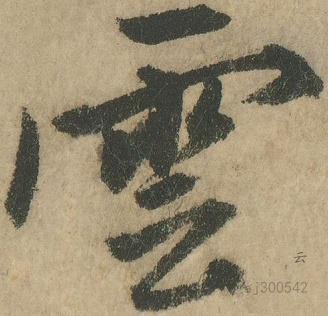 雲
云
sj300542